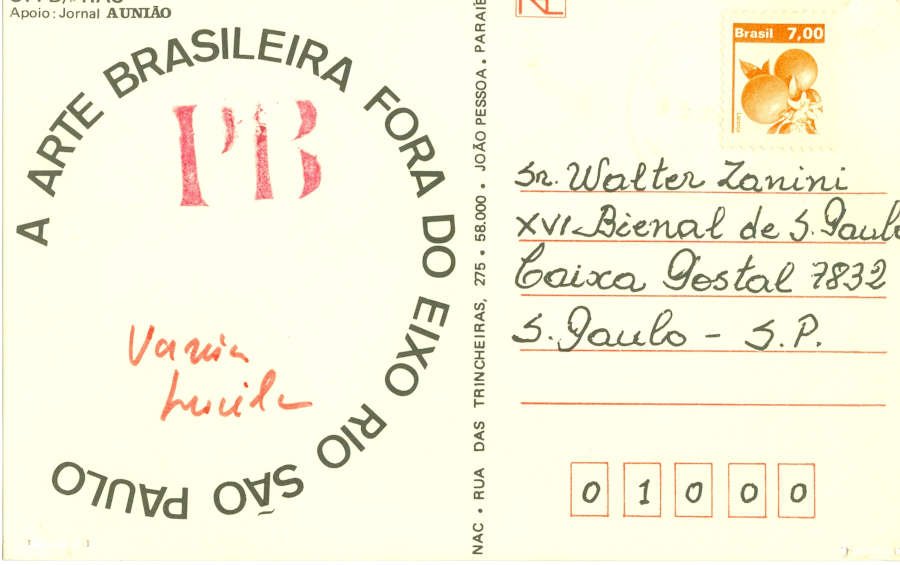 Apoio: Jornal A UNIÃO
A ARTE BRASILEIRA FORA DO EIXO RIO SÃO PAULO
PB
Vania
Lucila
NAC • RUA DAS TRINCHEIRAS, 275 • 58.000 • JOÃO PESSOA • PARAÍB
Brasil 7,00
Sr. Walter Zanini
XVI-Bienal de S. Paulo
Caixa Postal 7832
S. Paulo - S.P.
0 1 0 0 0